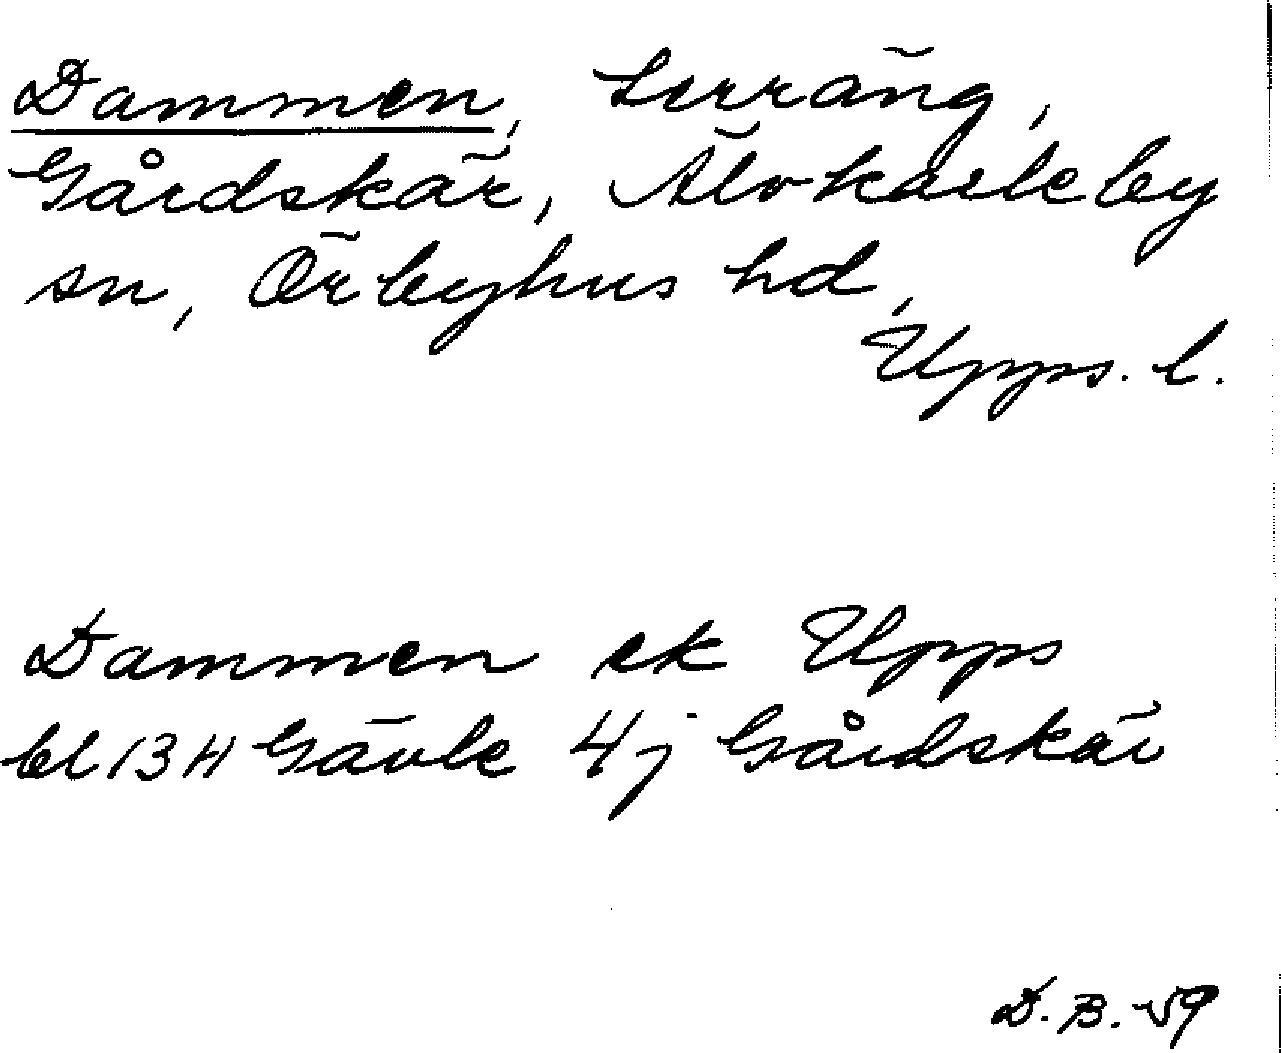 Dammen, terräng,
Gårdskär, Älvkarleby
sn, Örbyhus hd,
Upps. l.
Dammen ek Upps
bl 13H Gävle 4j Gårdskär
D. B. 59